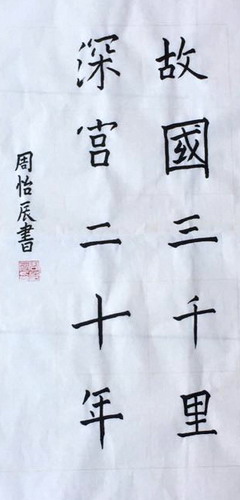 故國三千里
深宫二十年
周怡辰書